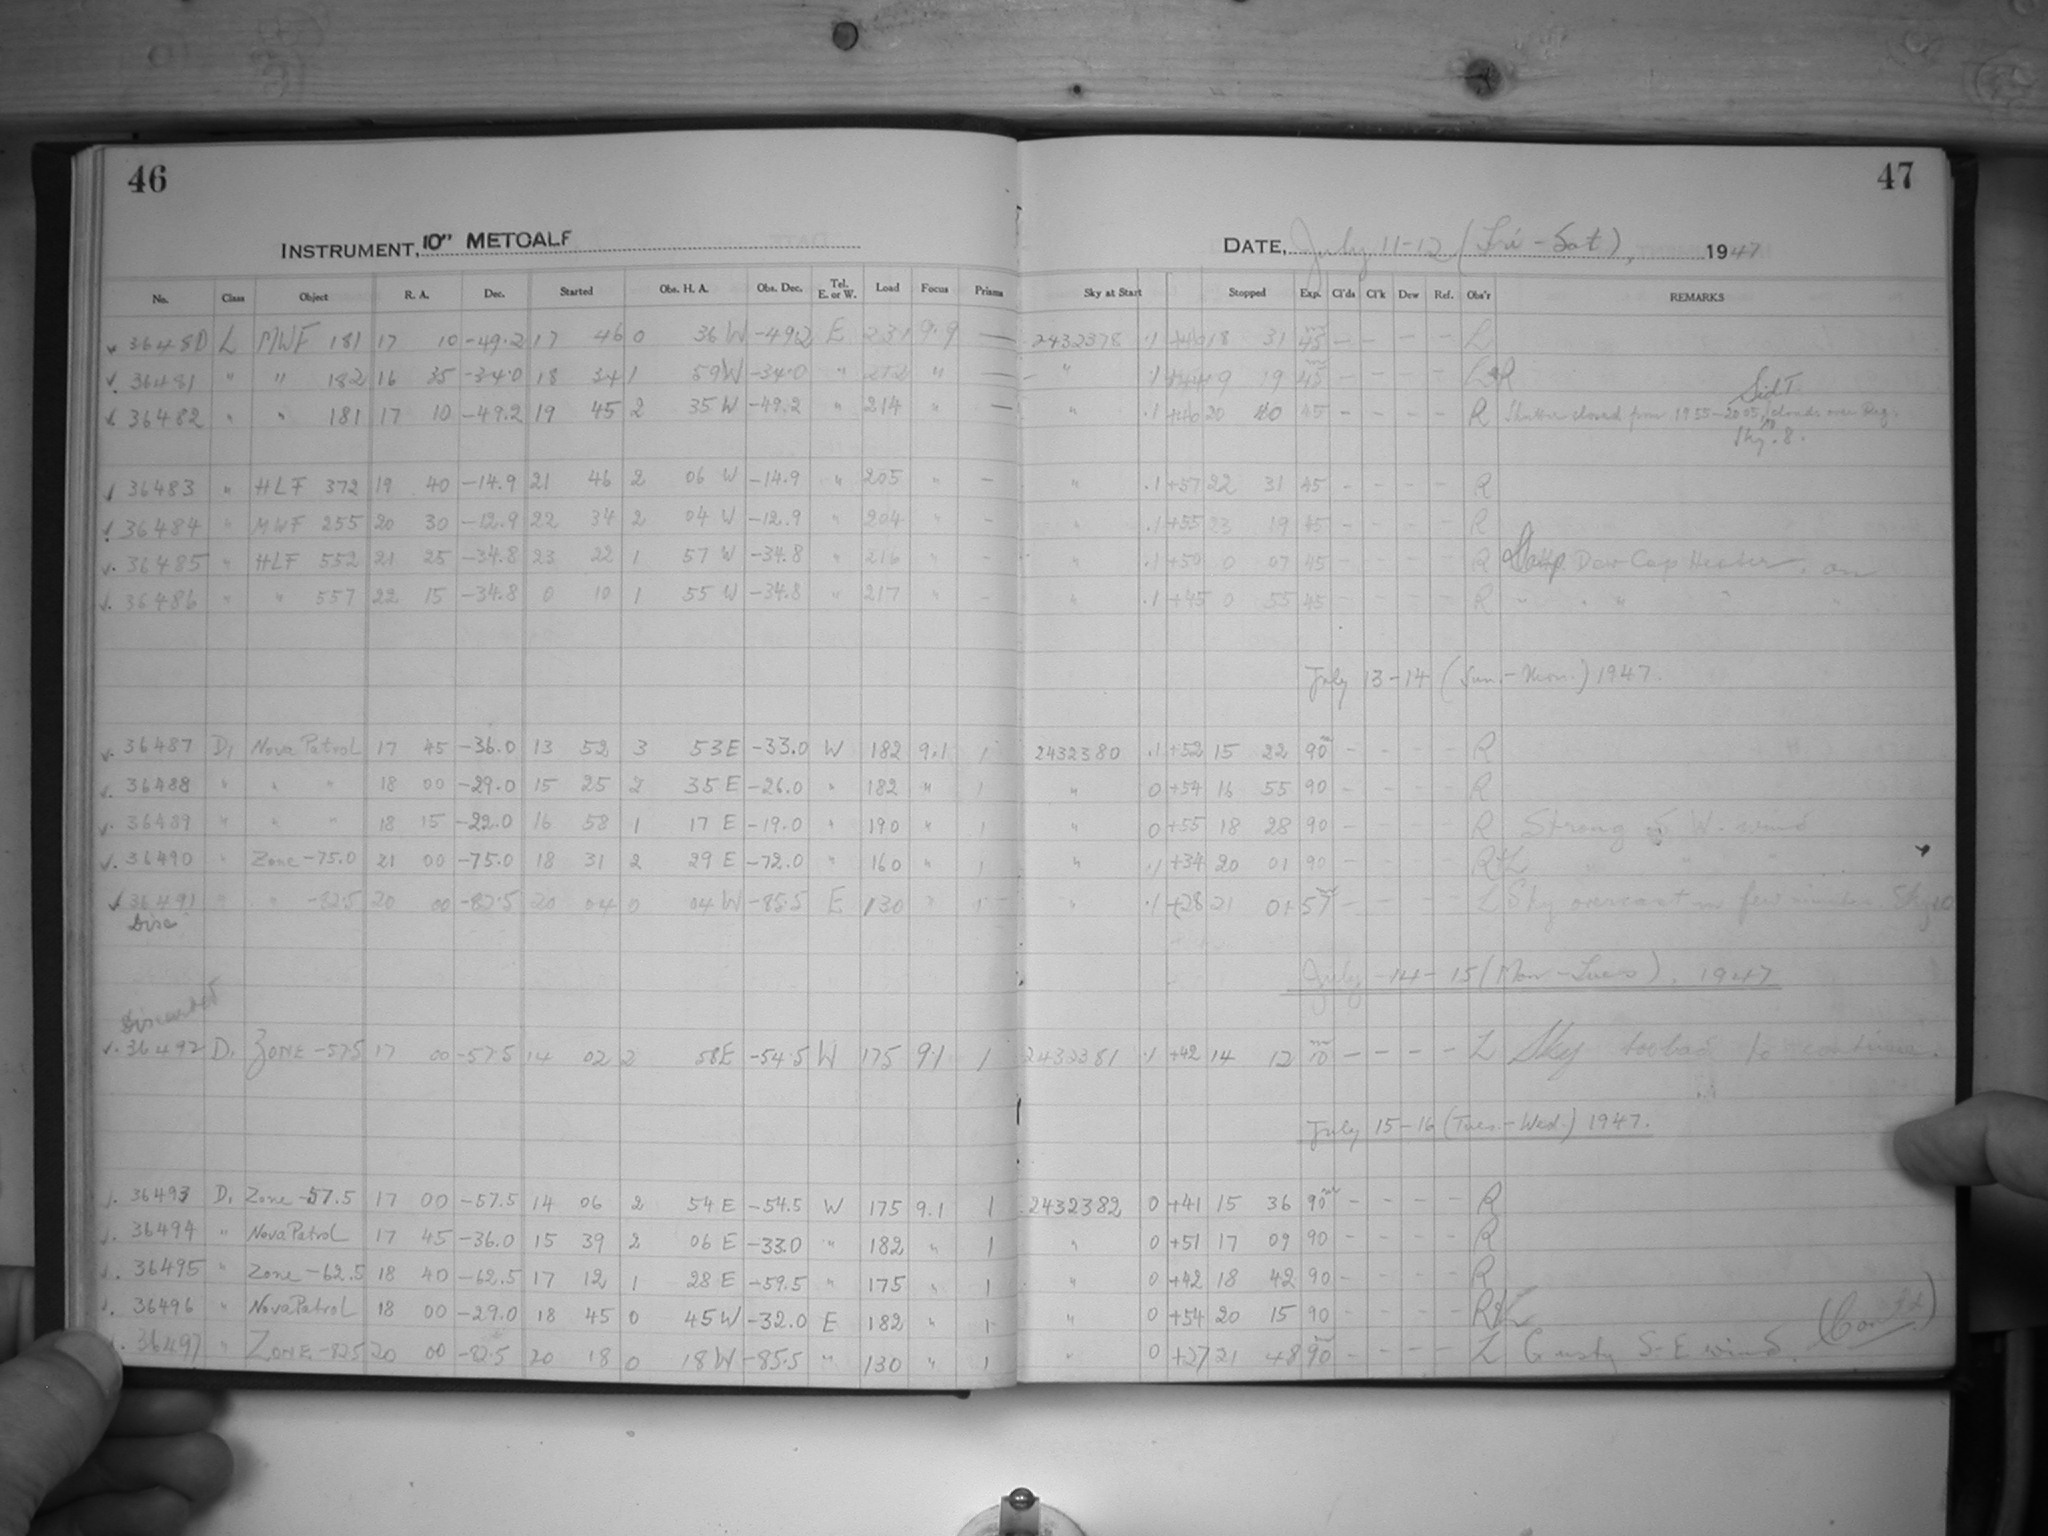 46
47
INSTRUMENT, 10" METCALF
DATE, July 11-12 (Fri - Sat), 1947
No. Class Object R. A. Dec. Started Obs. H. A. Obs. Dec. Tel. E. or W. Load Focus Prisms Sky at Start Stopped Exp. Cl'ds Cl'k Dew Ref. Obs'r REMARKS
36480 L MWF 181 17 10 -49.2 17 46 0 36 W -49.2 E 231 9.9 — 2432378 .1 +40 18 31 45 - - - - L
36481 " " 182 16 35 -34.0 18 34 1 59 W -34.0 " 212 " — " .1 19 19 45 - - - - L&R
36482 " " 181 17 10 -49.2 19 45 2 35 W -49.2 " 214 " — " .1 +40 20 40 45 - - - - R Shutter closed from 1955-2005 Sid. T. clouds over Reg. Sky .8.
36483 " HLF 372 19 40 -14.9 21 46 2 06 W -14.9 " 205 " - " .1 +57 22 31 45 - - - - R
36484 " MWF 255 20 30 -12.9 22 34 2 04 W -12.9 " 204 " - " .1 +55 23 19 45 - - - - R
36485 " HLF 552 21 25 -34.8 23 22 1 57 W -34.8 " 216 " - " .1 +50 0 07 45 - - - - R Dew Cap Heater, on
36486 " " 557 22 15 -34.8 0 10 1 55 W -34.8 " 217 " - " .1 +45 0 55 45 - - - - R " " " " "
July 13-14 (Sun.-Mon.) 1947.
36487 D, Nova Patrol 17 45 -36.0 13 52 3 53 E -33.0 W 182 9.1 1 2432380 .1 +52 15 22 90m - - - - R
36488 " " " 18 00 -29.0 15 25 2 35 E -26.0 " 182 " 1 " 0 +54 16 55 90 - - - - R
36489 " " " 18 15 -22.0 16 58 1 17 E -19.0 " 190 " 1 " 0 +55 18 28 90 - - - - R Strong S W. wind
36490 " Zone -75.0 21 00 -75.0 18 31 2 29 E -72.0 " 160 " 1 " .1 +34 20 01 90 - - - - R&L " " "
36491 " " -82.5 20 00 -82.5 20 04 0 04 W -85.5 E 130 " 1 " .1 +28 21 01 57m - - - - L Sky overcast in few minutes. Sky 10
Disc
July 14-15 (Mon-Tues), 1947
Discarded
36492 D, ZONE -57.5 17 00 -57.5 14 02 2 58 E -54.5 W 175 9.1 1 2432381 .1 +42 14 12 10m - - - - L Sky too bad to continue.
July 15-16 (Tues.-Wed.) 1947.
36493 D, Zone -57.5 17 00 -57.5 14 06 2 54 E -54.5 W 175 9.1 1 2432382 0 +41 15 36 90m - - - - R
36494 " Nova Patrol 17 45 -36.0 15 39 2 06 E -33.0 " 182 " 1 " 0 +51 17 09 90 - - - - R
36495 " Zone -62.5 18 40 -62.5 17 12 1 28 E -59.5 " 175 " 1 " 0 +42 18 42 90 - - - - R
36496 " Nova Patrol 18 00 -29.0 18 45 0 45 W -32.0 E 182 " 1 " 0 +54 20 15 90 - - - - R&L
36497 " ZONE -82.5 20 00 -82.5 20 18 0 18 W -85.5 " 130 " 1 " 0 +27 21 48 90m - - - - L Gusty S-E wind. (Cont'd)